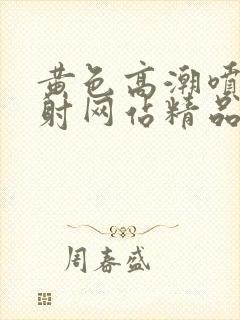 黄色高潮喷
射网佔精品
周春盛